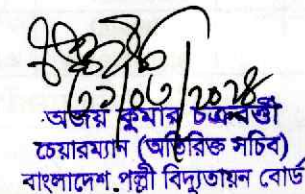 ৩১/০৩/২০২৪
অজয় কুমার চক্রবর্ত্তী
চেয়ারম্যান (অতিরিক্ত সচিব)
বাংলাদেশ পল্লী বিদ্যুতায়ন বোর্ড